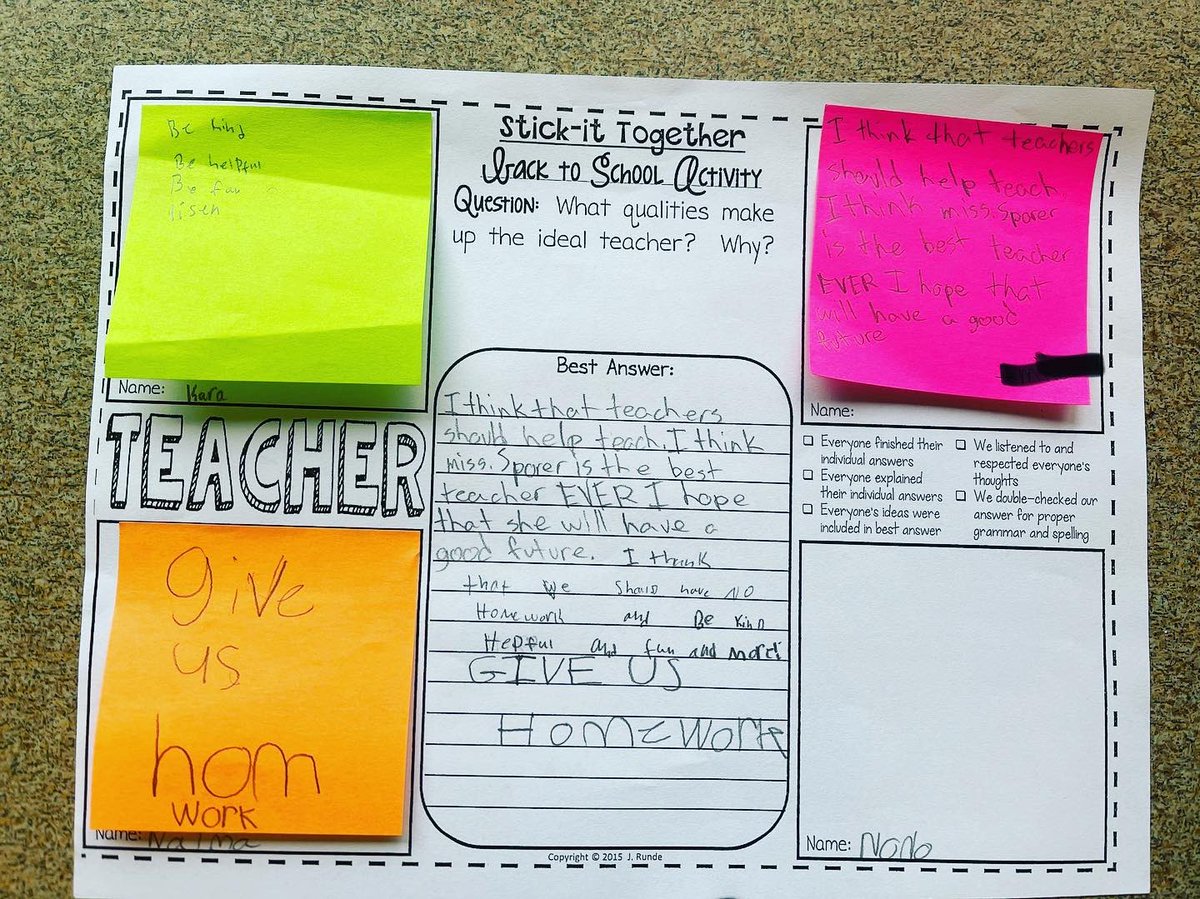 Stick-it Together
Back to School Activity
Question: What qualities make
up the ideal teacher? Why?
Be kind
Be helpful
Be fun
lisen
Name: Kara
I think that teachers
should help teach
I think miss.Sporer
is the best teacher
EVER I hope that
will have a good
future
Name:
TEACHER
Best Answer:
I think that teachers
should help teach. I think
miss. Sporer is the best
teacher EVER I hope
that she will have a
good future. I think
that we should have NO
Homework and Be kind
Helpful and fun and more!
GIVE US
HomeWork
☐ Everyone finished their
individual answers
☐ Everyone explained
their individual answers
☐ Everyone's ideas were
included in best answer
☐ We listened to and
respected everyone's
thoughts
☐ We double-checked our
answer for proper
grammar and spelling
give
us
hom
work
Name: Naima
Name: Nono
Copyright © 2015 J. Runde